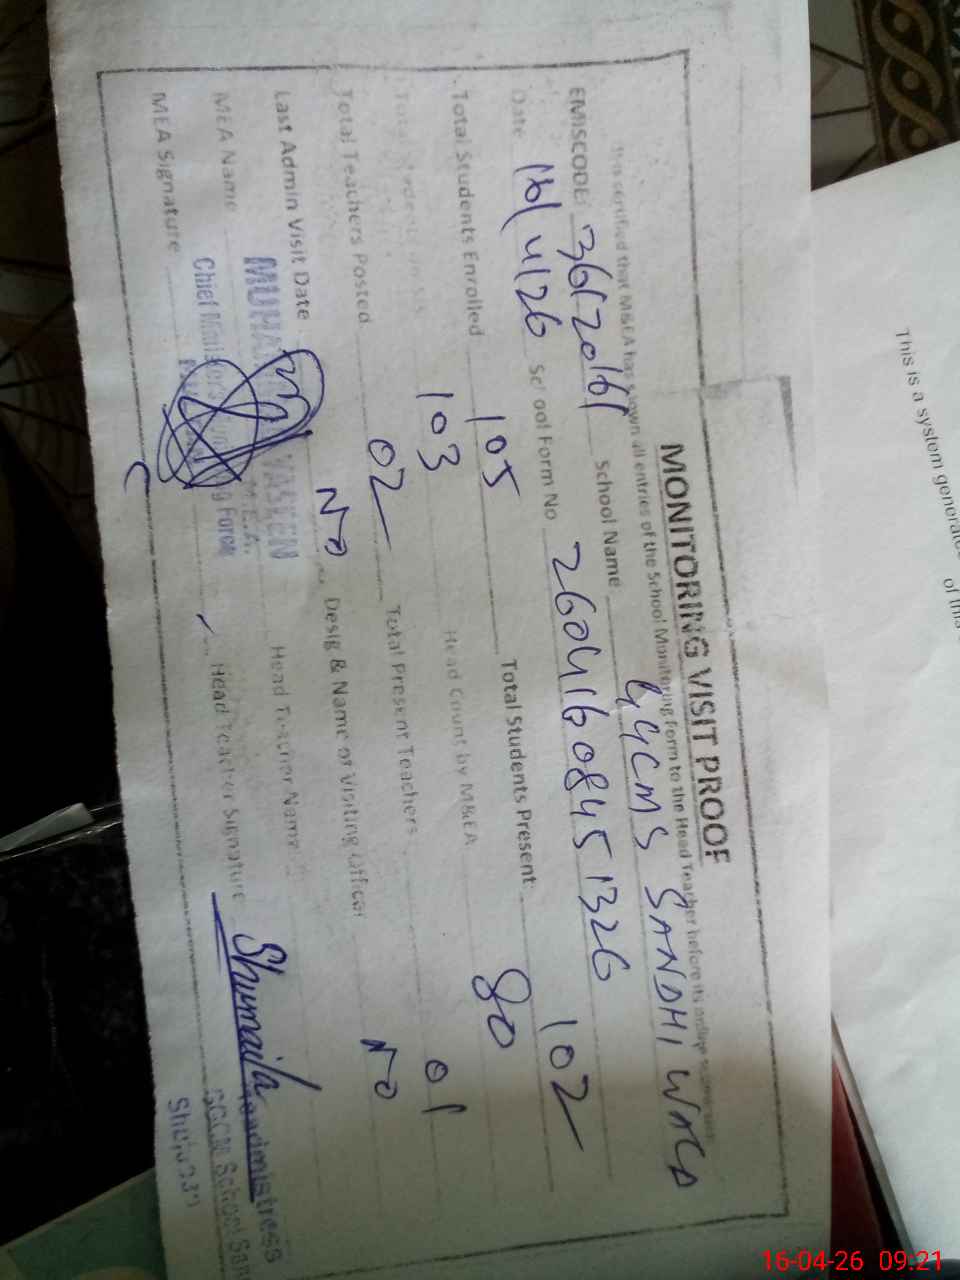 MONITORING VISIT PROOF
This certified that M&EA has shown all entries of the School Monitoring form to the Head Teacher before its online
EMISCODE 36120161 School Name GGCMS SANDHI WALA
Date 16/4/26 School Form No 26041608451326
Total Students Enrolled 105 Total Students Present 102
Total Students 103 Head Count by M&EA 80
Total Teachers Posted 02 Total Present Teachers 01
Last Admin Visit Date No Desig & Name of Visiting Officer No
MEA Name YASEEN M.E.A. Head Teacher Name
MEA Signature Chief Monitoring Force Head Teacher Signature Shumaila
Headmistress
School
This is a system generated
of this
16-04-26 09:21